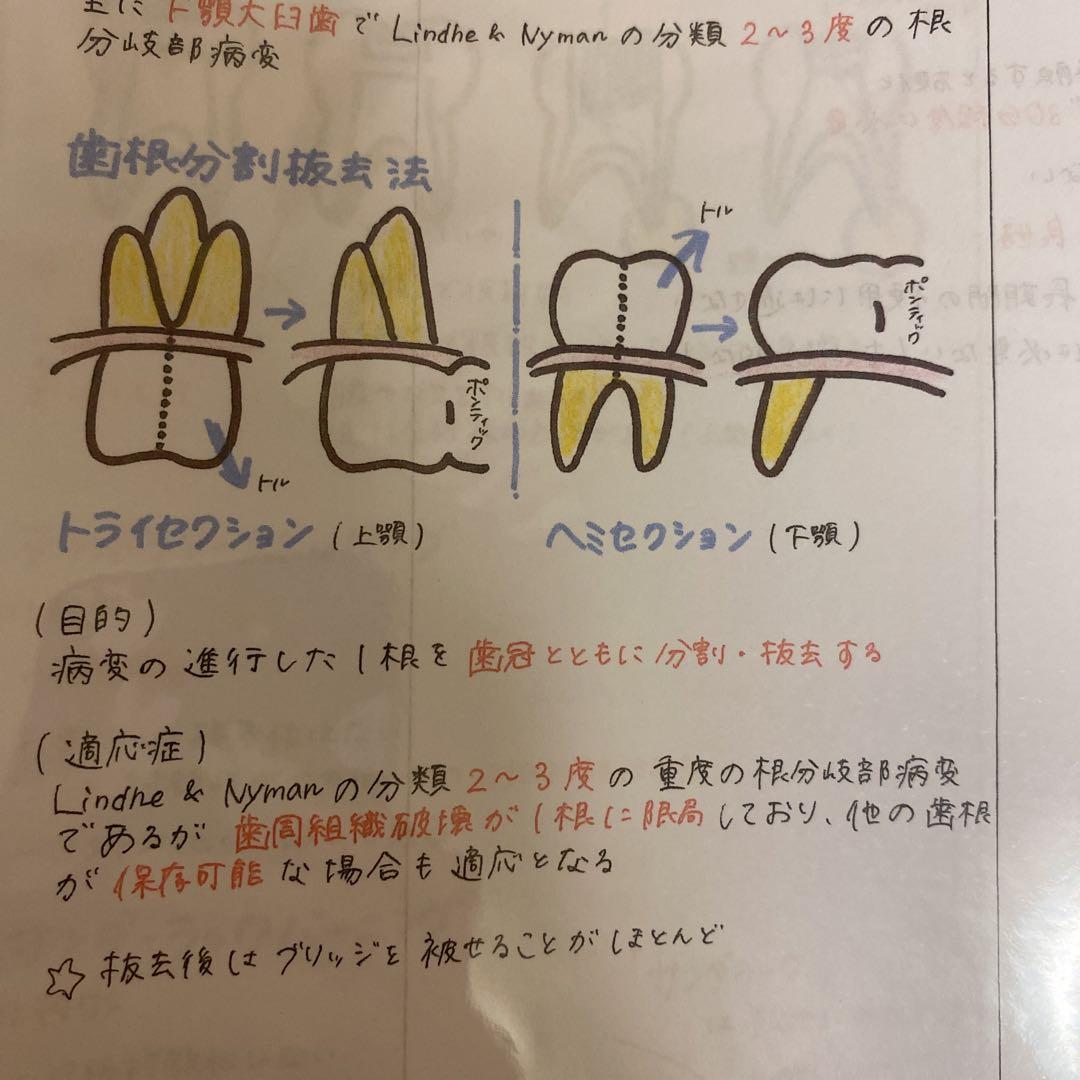 主に 下顎大臼歯で Lindhe & Nyman の分類 2～3度の根
分岐部病変
歯根分割抜去法
トル
ポンティック
トライセクション (上顎)
トル
ポンティック
ヘミセクション (下顎)
(目的)
病変の進行した1根を 歯冠とともに分割・抜去する
(適応症)
Lindhe & Nymanの分類 2～3度の 重度の根分岐部病変
であるが 歯周組織破壊が1根に限局しており、他の歯根
が 保存可能な場合も適応となる
☆ 抜去後は ブリッジを 被せることがほとんど